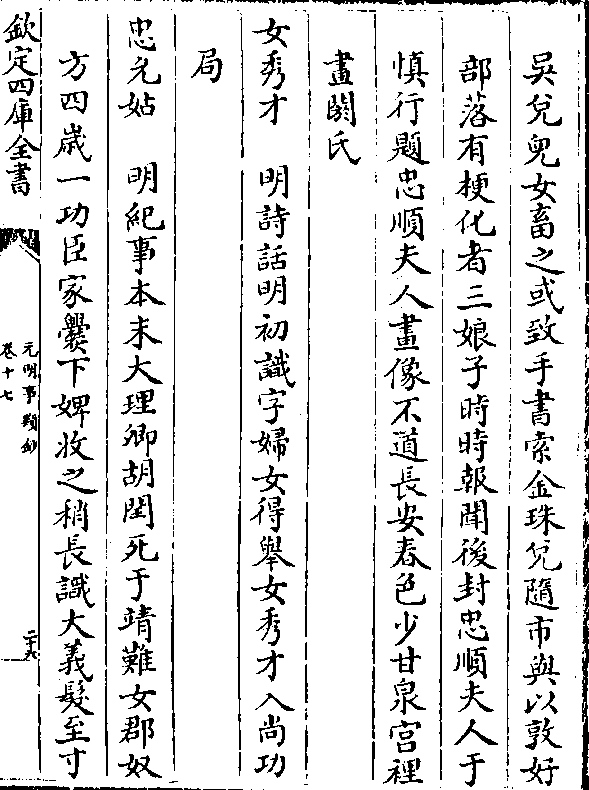 吳兌兒女畜之或致手書索金珠兌隨市與以敦好
部落有梗化者三娘子時時報聞後封忠順夫人于
慎行題忠順夫人畫像不道長安春色少甘泉宫裡
畫閼氏
女秀才　明詩話明初識字婦女得舉女秀才入尚功
局
忠允姑　明紀事本末大理卿胡閏死于靖難女郡奴
方四歲一功臣家爨下婢收之稍長識大義髮至寸
欽定四庫全書
元明事類鈔
卷十七
二十六